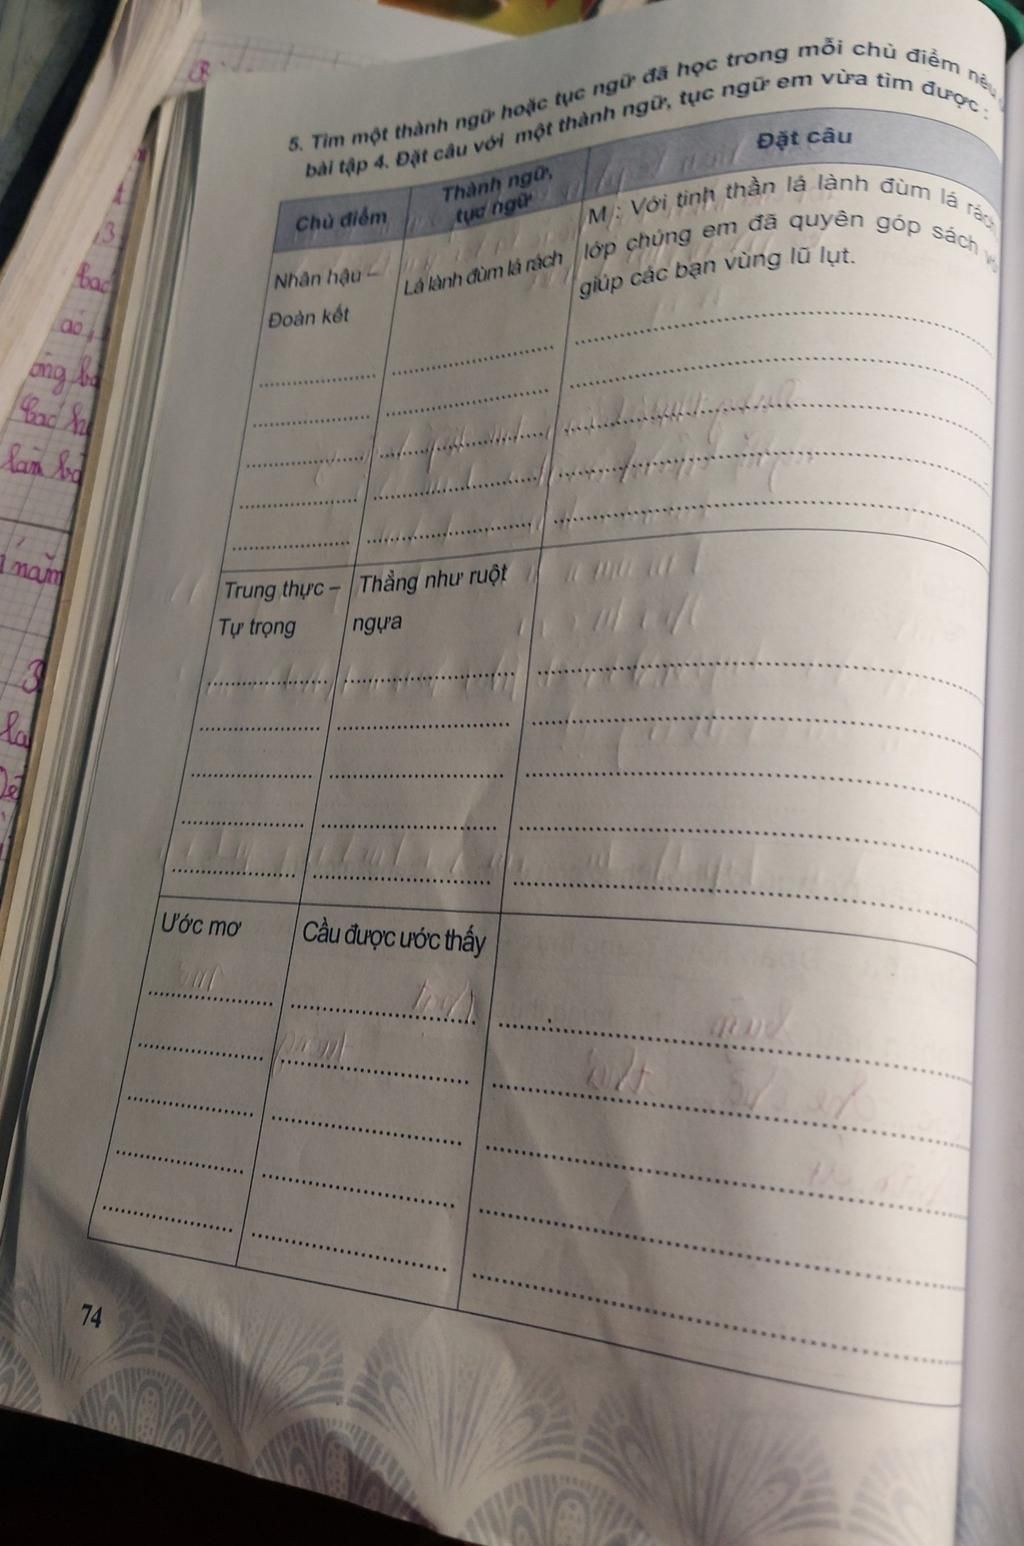 5. Tìm một thành ngữ hoặc tục ngữ đã học trong mỗi chủ điểm nêu
bài tập 4. Đặt câu với một thành ngữ, tục ngữ em vừa tìm được :
Chủ điểm
Thành ngữ,
tục ngữ
Đặt câu
Nhân hậu –
Đoàn kết
Lá lành đùm lá rách
M : Với tinh thần lá lành đùm lá rách
lớp chúng em đã quyên góp sách vở
giúp các bạn vùng lũ lụt.
Trung thực –
Tự trọng
Thẳng như ruột
ngựa
Ước mơ
Cầu được ước thấy
74
3
bac
ao,
ông ba
bac
làm bà
năm
3
la